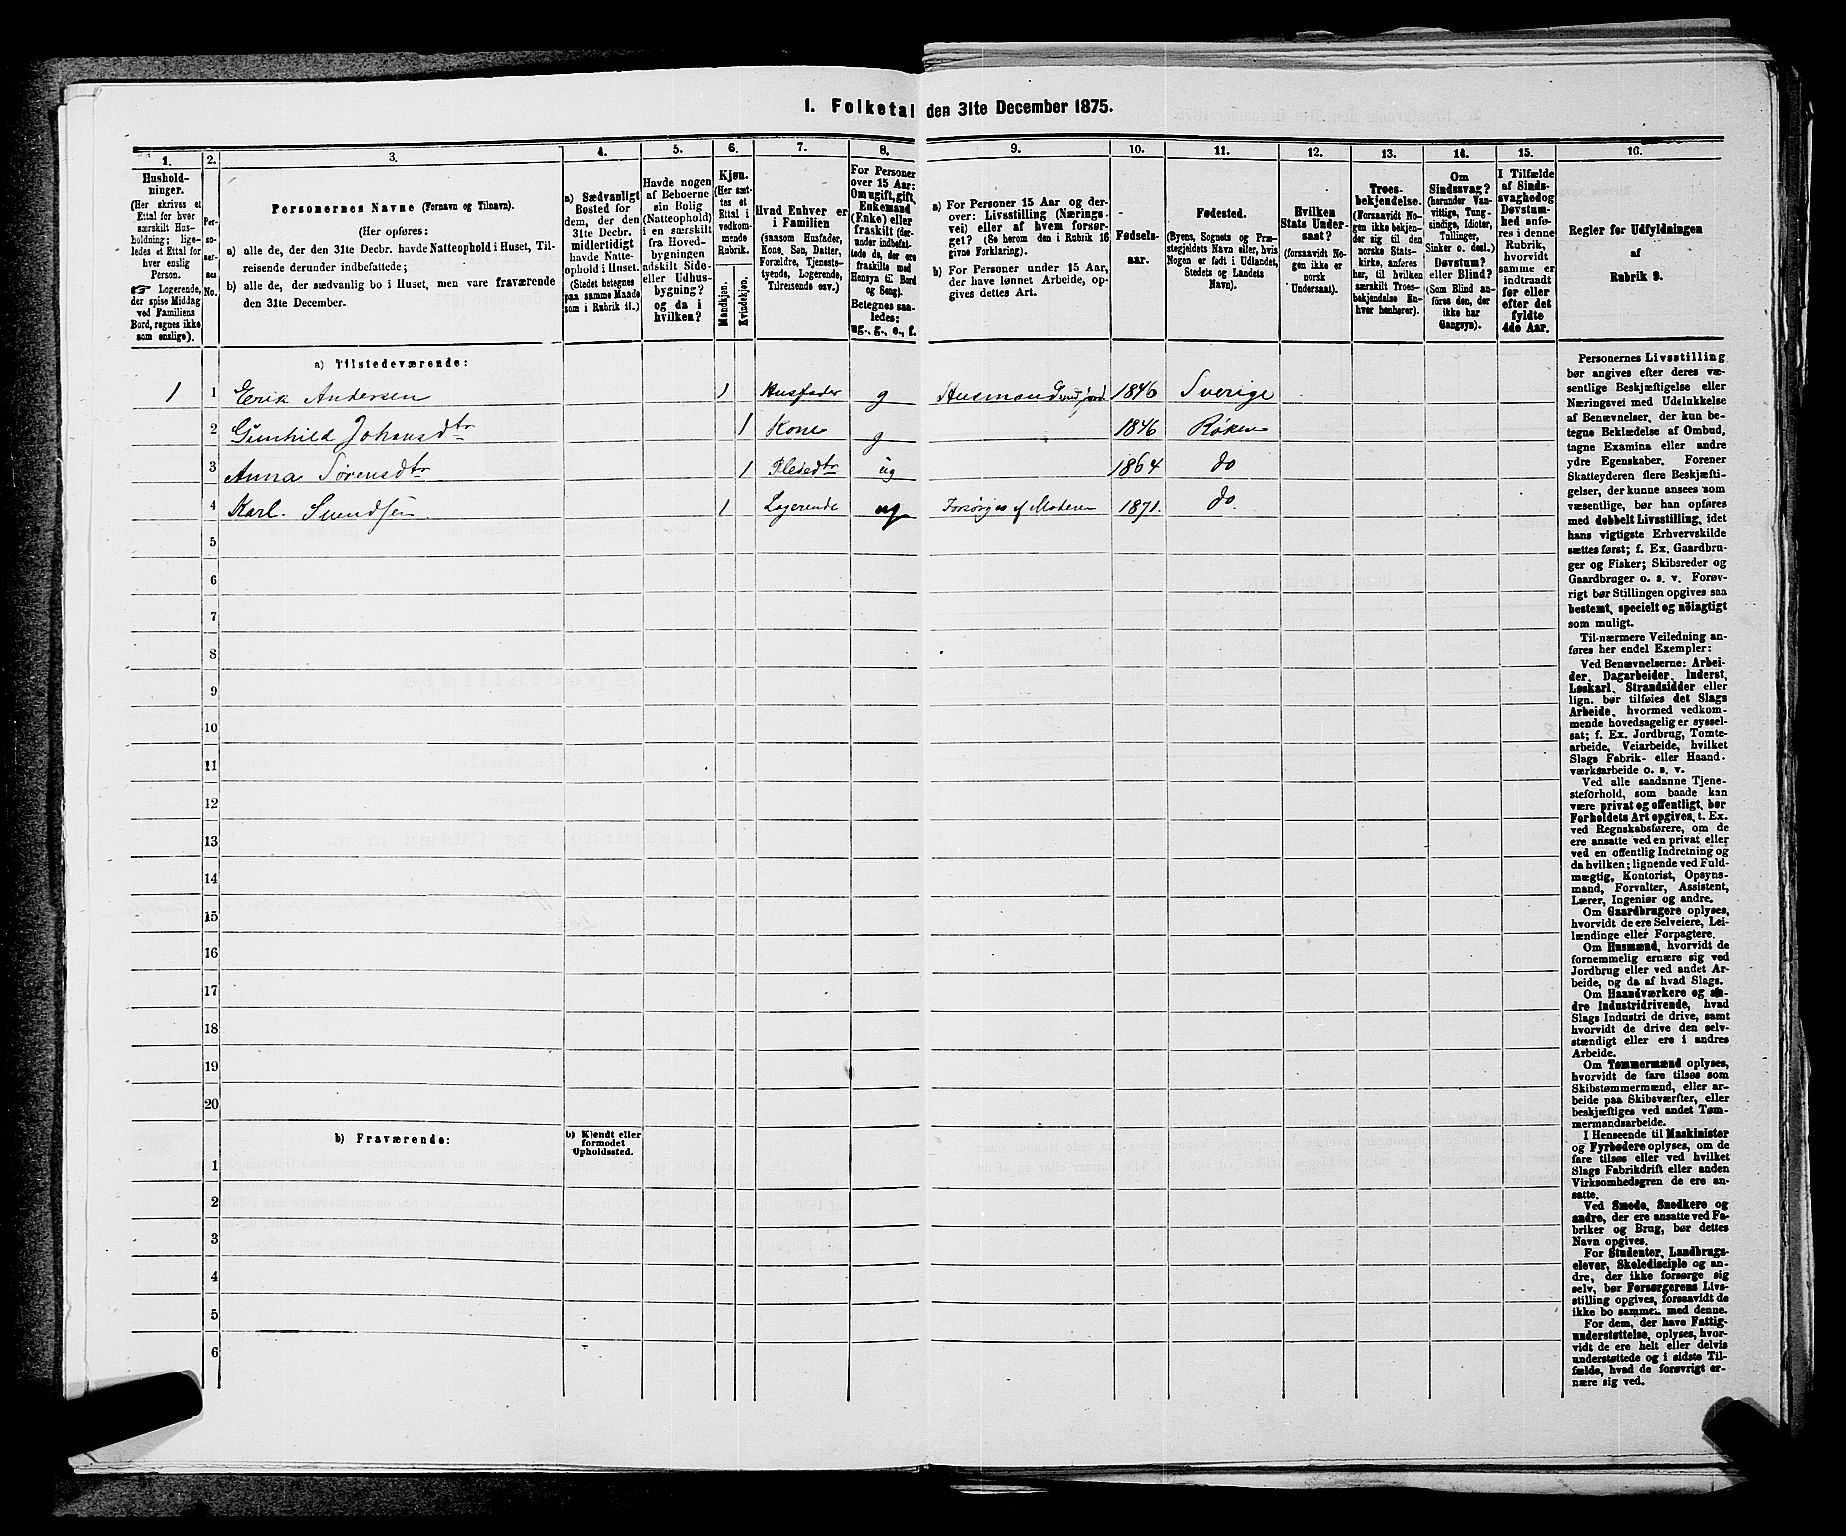 1. Folketal den 31te December 1875.
1.
2.
3.
4.
5.
6.
7.
8.
9.
10.
11.
12.
13.
14.
15.
16.
Hushold-
ninger.
(Her skrives et
Ettal for hver
særskilt Hus-
holdning; lige-
ledes et Ettal for
hver enslig
Person.
☞ Logerende,
der spise Middag
ved Familiens
Bord, regnes ikke
som enslige).
Per-
so-
ner-
nes
No.
Personernes Navne (Fornavn og Tilnavn).
(Her opføres:
a) alle de, der den 31te Decbr. havde Natteophold i Huset, Til-
reisende derunder indbefattede;
b) alle de, der sædvanlig bo i Huset, men vare fraværende
den 31te December.
a) Sædvanligt
Bosted for
dem, der den
31te Decbr.
midlertidigt
havde Natte-
ophold i Huset.
(Stedet betegnes
paa samme Maade
som i Rubrik 11.)
Havde nogen
af Beboerne
sin Bolig
(Natteophold)
i en særskilt
fra Hoved-
bygningen
adskilt Side-
eller Udhus-
bygning?
og da i
hvilken?
Kjøn.
(Her sæt-
tes et
Ettal i
vedkom-
mende
Rubrik.)
Mandkjøn.
Kvindekjøn.
Hvad Enhver er
i Familien
(saasom Husfader,
Kone, Søn, Datter,
Forældre, Tjeneste-
tyende, Logerende,
Tilreisende osv.)
For Personer
over 15 Aar:
Om ugift, gift,
Enkemand
(Enke) eller
fraskilt (der-
under indbefat-
tede da, de ere
fraskilte med
Hensyn til Bord
og Seng).
Betegnes saa-
ledes:
ug., g., e., f.
a) For Personer 15 Aar og der-
over: Livsstilling (Nærings-
vei) eller af hvem forsør-
get? (Se herom den i Rubrik 16
givne Forklaring).
b) For Personer under 15 Aar,
der have lønnet Arbeide, op-
gives dettes Art.
Fødsels-
aar.
Fødested.
(Byens, Sognets og Præ-
stegjeldets Navn eller, hvis
Nogen er født i Udlandet,
Stedets og Landets
Navn).
Hvilken
Stats Under-
saat?
(forsaavidt No-
gen ikke er
norsk
Undersaat).
Troes-
bekjendelse.
(Forsaavidt No-
gen ikke bekjen-
der sig til den
norske Stats-
kirke, anføres
her, til hvilken
særskilt Troes-
bekjendelse En-
hver henhører).
Om
Sindssvag?
(herunder Van-
vittige, Tung-
sindige, Idioter,
Tullinger,
Sinker o. desl.)
Døvstum?
eller Blind?
(Som Blind an-
føres den, der
ikke har
Gangsyn).
I Tilfælde
af Sinds-
svaghed og
Døvstum-
hed anfø-
res i denne
Rubrik,
hvorvidt
samme er
indtraadt
før eller
efter det
fyldte
4de Aar.
Regler for Udfyldningen
af
Rubrik 9.
a) Tilstedeværende:
1 1 Erik Andersen 1 Husfader g Husmand med jord 1846 Sverige
2 Gunhild Johansdtr 1 Kone g 1846 Røken
3 Anna Sørensdtr 1 Pleiedtr ug 1864 do
4 Karl. Svendsen 1 Logerende ug Forsørges af Moderen 1871. do.
5
6
7
8
9
10
11
12
13
14
15
16
17
18
19
20
b) Fraværende:
b) Kjendt eller
formodet
Opholdssted.
1
2
3
4
5
6
Personernes Livsstilling
bør angives efter deres væ-
sentlige Beskjæftigelse eller
Næringsvei med Udelukkelse
af Benævnelser, der kun be-
tegne Beklædelse af Ombud,
tagne Examina eller andre
ydre Egenskaber. Forener
Skatteyderen flere Beskjæfti-
gelser, der kunne ansees som
væsentlige, bør han opføres
med dobbelt Livsstilling, idet
hans vigtigste Erhvervskilde
sættes først; f. Ex. Gaardbru-
ger og Fisker; Skibsreder og
Gaardbruger o. s. v. Forøv-
rigt bør Stillingen opgives saa
bestemt, specielt og nöiagtigt
som muligt.
Til nærmere Veiledning an-
føres her endel Exempler:
Ved Benævnelserne: Arbei-
der, Dagarbeider, Inderst,
Løskarl, Strandsidder eller
lign. bør tilføies det Slags
Arbeide, hvormed vedkom-
mende hovedsagelig er syssel-
sat; f. Ex. Jordbrug, Tomte-
arbeide, Veiarbeide, hvilket
Slags Fabrik- eller Haand-
værksarbeide o. s. v.
Ved alle saadanne Tjene-
steforhold, som baade kan
være privat og offentligt, bør
Forholdets Art opgives, t. Ex.
ved Regnskabsførere, om de
ere ansatte ved en privat eller
ved en offentlig Indretning og
da hvilken; lignende ved Fuld-
mægtig, Kontorist, Opsyns-
mand, Forvalter, Assistent,
Lærer, Ingeniør og andre.
Om Gaardbrugere oplyses,
hvorvidt de ere Selveiere, Lei-
lændinge eller Forpagtere.
Om Husmænd, hvorvidt de
fornemmelig ernære sig ved
Jordbrug eller ved andet Ar-
beide, og da af hvad Slags.
Om Haandværkere og an-
dre Industridrivende, hvad
Slags Industri de drive, samt
hvorvidt de drive den selv-
stændigt eller ere i andres
Arbeide.
Om Tømmermænd oplyses,
hvorvidt de fare tilsøs som
Skibstømmermænd, eller ar-
beide paa Skibsværfter, eller
beskjæftiges ved andet Tøm-
mermandsarbeide.
I Henseende til Maskinister
og Fyrbødere oplyses, om de
fare tilsøs eller ved hvilket
Slags Fabrikdrift eller anden
Virksomhedsgren de ere an-
satte.
Ved Smede, Snedkere og
andre, der ere ansatte ved Fa-
briker og Brug, bør dettes
Navn opgives.
For Studenter, Landbrugs-
elever, Skoledisciple og an-
dre, der ikke forsørge sig
selv, bør Forsørgerens Livs-
stilling opgives, forsaavidt de
ikke bo sammen med denne.
For dem, der have Fattig-
understøttelse, oplyses, hvor-
vidt de ere helt eller delvis
understøttede og i sidste Til-
fælde, hvad de forøvrigt er-
nære sig ved.